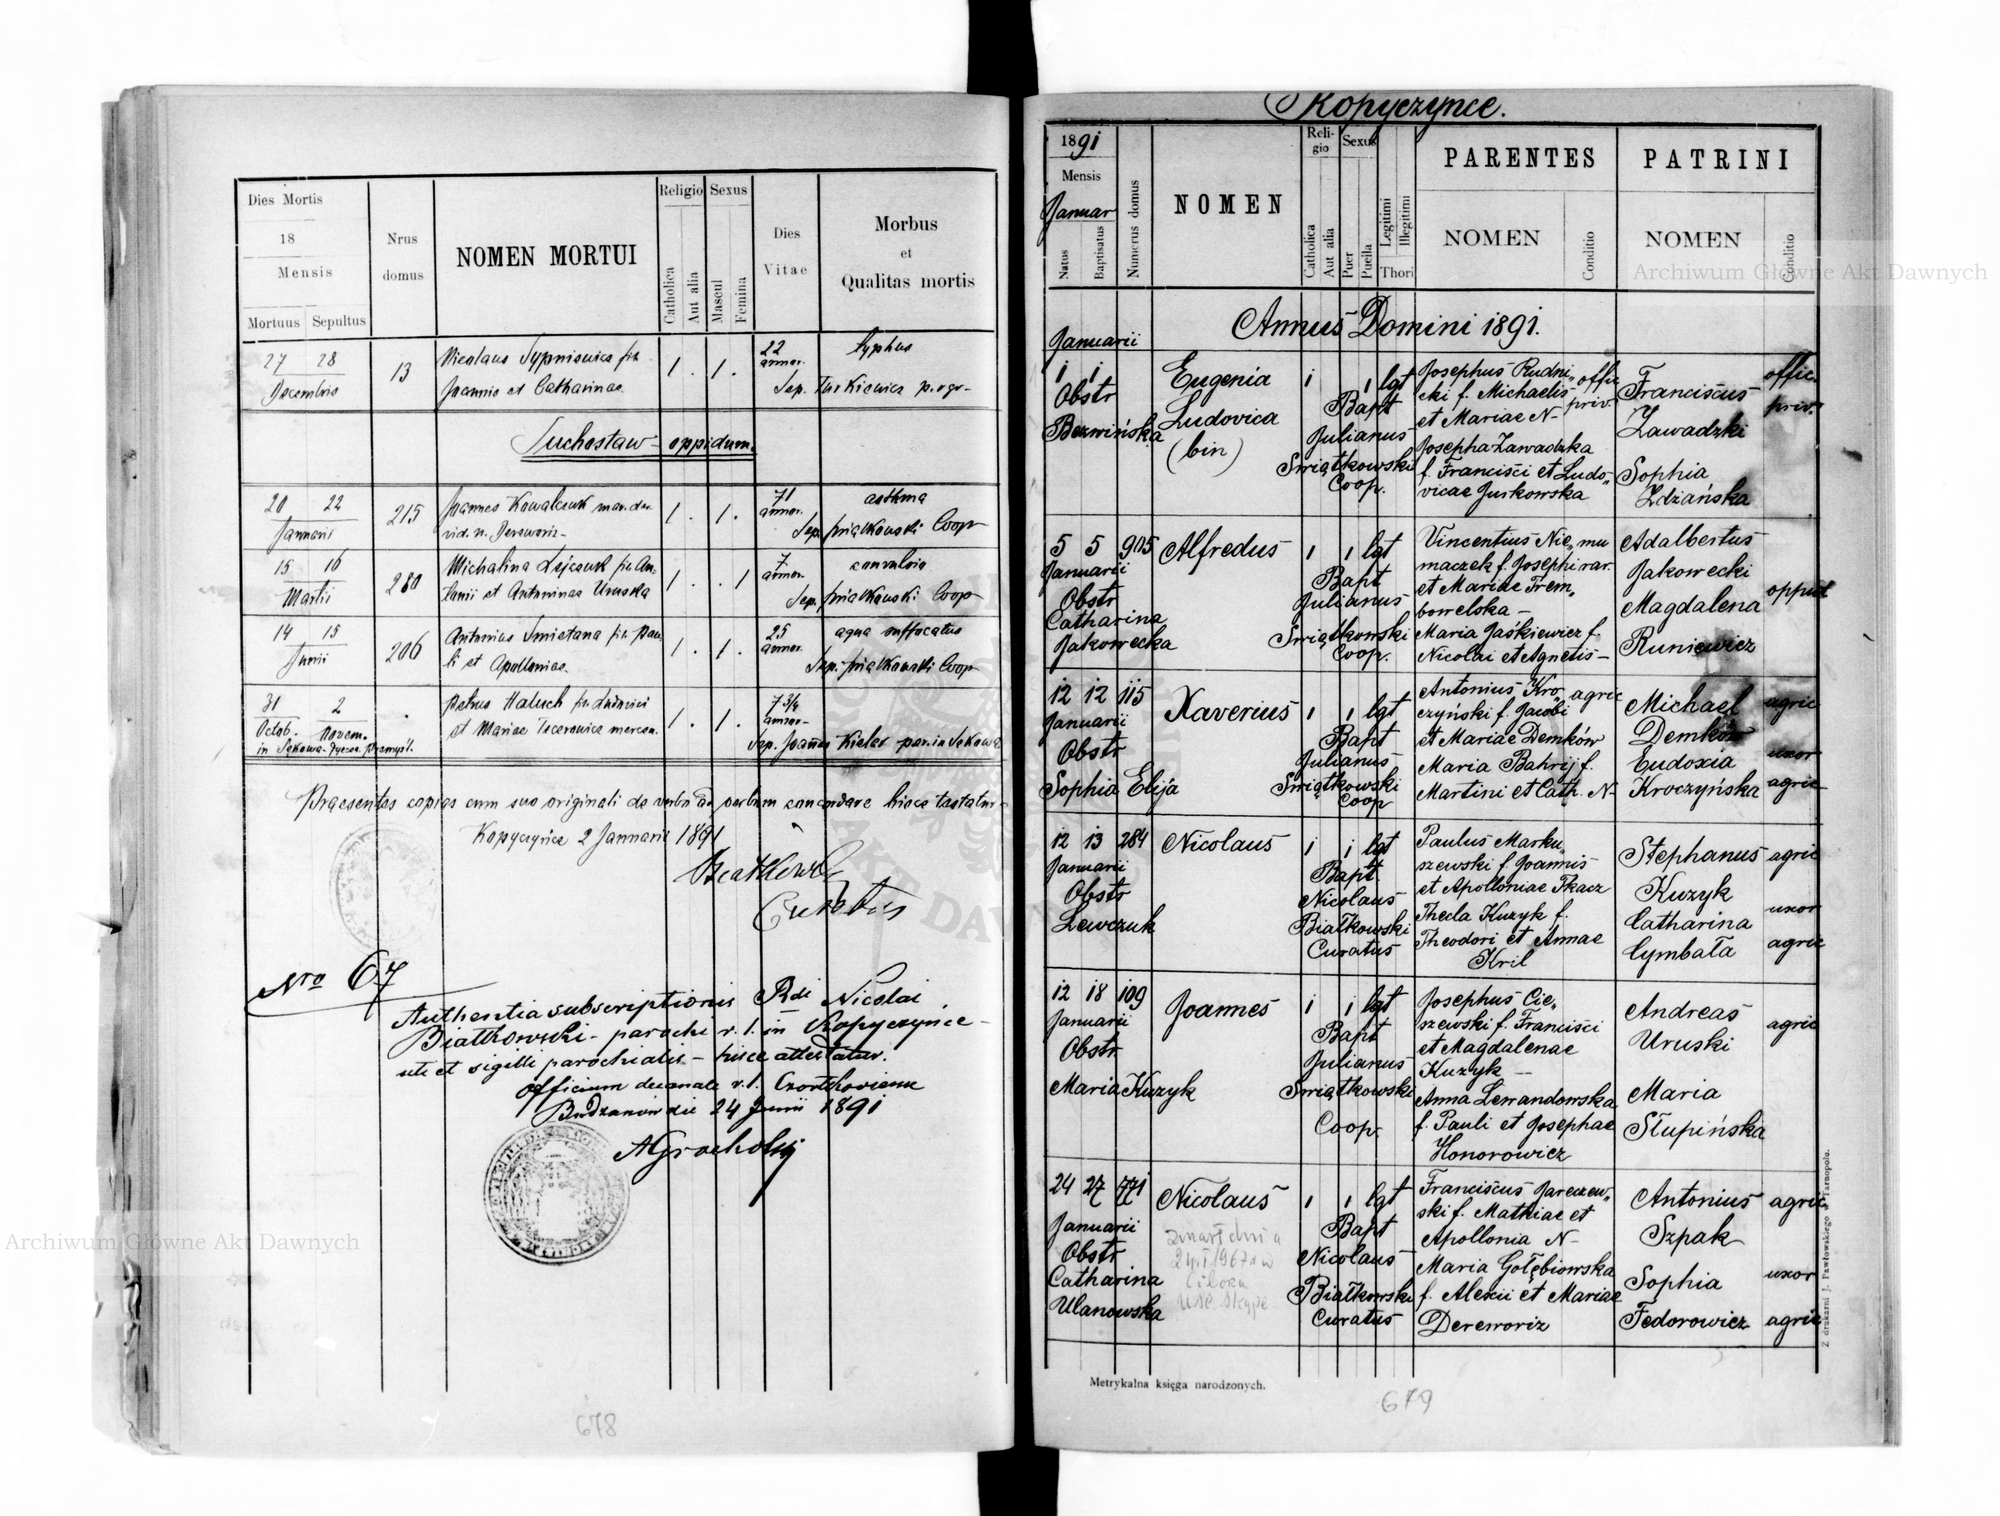 Dies Mortis
18
Mensis
Mortuus Sepultus
Nrus
domus
NOMEN MORTUI
Religio Sexus
Catholica
Aut alia
Mascul
Femina
Dies
Vitae
Morbus
et
Qualitas mortis
27 28
Decembris
13
Nicolaus Sypniewicz fil.
Joannis et Catharinae
1 . 1 .
22
annor.
typhus
Sep. Turkiewicz
Suchostaw oppidum.
20 22
Januarii
215
Joannes Kowalczuk
1 . 1 .
71
annor.
asthma
Sep. Swiątkowski Coop
15 16
Martii
280
Michalina
et Antoninae Uruska
1 . . 1
7
annor.
Sep. Swiątkowski Coop
14 15
Junii
206
Antonius Smietana fil. Pau
li et Apolloniae
1 . 1 .
25
annor.
aqua suffocatus
Sep. Swiątkowski Coop
31 2
Octob. Novem.
Petrus Haluch fil.
et Mariae
1 . 1 .
7 3/4
annor.
Sep. Joannes Kielar par. in Sękowa
Praesentes copias cum suo originali de verbo ad verbum concordare hisce testatur
Kopyczyńce 2 Januarii 1891
Curatus
Nro 67
Authentia subscriptionis Rdi Nicolai
Białkowski parochi r. l. in Kopyczyńce
uti et sigilli parochialis hisce attestatur.
Officium decanale r. l. Czortkoviense
Budzanów die 24 Junii 1891
678
Kopyczynce.
1891
Mensis
Januar
Natus
Baptisatus
Numerus domus
NOMEN
Reli-
gio
Catholica
Aut alia
Sexus
Puer
Puella
Legitimi
Illegitimi
Thori
PARENTES
NOMEN
Conditio
PATRINI
NOMEN
Conditio
Annus Domini 1891.
Januarii
1 1
Obstr
Bezwińska
Eugenia
Ludovica
(bin)
1 1 lgt
Bapt
Julianus
Swiątkowski
Coop.
Josephus Rudni„
cki f. Michaelis
et Mariae N-
Josepha Zawadzka
f. Francisci et Ludo„
vicae Jurkowska
offic
priv.
Franciscus
Zawadzki
Sophia
Zdzańska
offic.
priv.
5 5 905
Januarii
Obstr
Catharina
Jakowecka
Alfredus
1 1 lgt
Bapt
Julianus
Swiątkowski
Coop.
Vincentius Nie„
maczek f. Josephi
et Mariae Trem„
bowelska -
Maria Jaśkiewicz f.
Nicolai et Agnetis -
mu
rar.
Adalbertus
Jakowecki
Magdalena
Runiewicz
oppid
12 12 115
Januarii
Obstr
Sophia Elija
Xaverius
1 1 lgt
Bapt
Julianus
Swiątkowski
Coop
Antonius Kro„
czyński f. Jacobi
et Mariae Demków
Maria Bahrij f.
Martini et Cath. N-
agric
Michael
Demków
Eudoxia
Kroczyńska
agric
uxor
agric
12 13 284
Januarii
Obstr
Lewczuk
Nicolaus
1 1 lgt
Bapt.
Nicolaus
Białkowski
Curatus
Paulus Marku„
szewski f. Joannis
et Apolloniae Tkacz
Thecla Kuzyk f.
Theodori et Annae
Kril
Stephanus
Kuzyk
Catharina
Cymbała
agric
uxor
agric
12 18 109
Januarii
Obstr
Maria Kuzyk
Joannes
1 1 lgt
Bapt
Julianus
Swiątkowski
Coop.
Josephus Cie„
szewski f. Francisci
et Magdalenae
Kuzyk -
Anna Lewandowska
f. Pauli et Josephae
Honorowicz
Andreas
Uruski
Maria
Słupińska
agric
24 27 771
Januarii
Obstr
Catharina
Ulanowska
Nicolaus
zmarł dnia
1 1 lgt
Bapt
Nicolaus
Białkowski
Curatus
Franciscus Jarczew„
ski f. Mathiae et
Apollonia N-
Maria Gołębiowska
f. Alexii et Mariae
Dereworiz
Antonius
Szpak
Sophia
Fedorowicz
agric
uxor
agric
Metrykalna księga narodzonych.
Z drukarni J. Pawłowskiego w Tarnopolu.
679
Archiwum Główne Akt Dawnych
Archiwum Główne Akt Dawnych